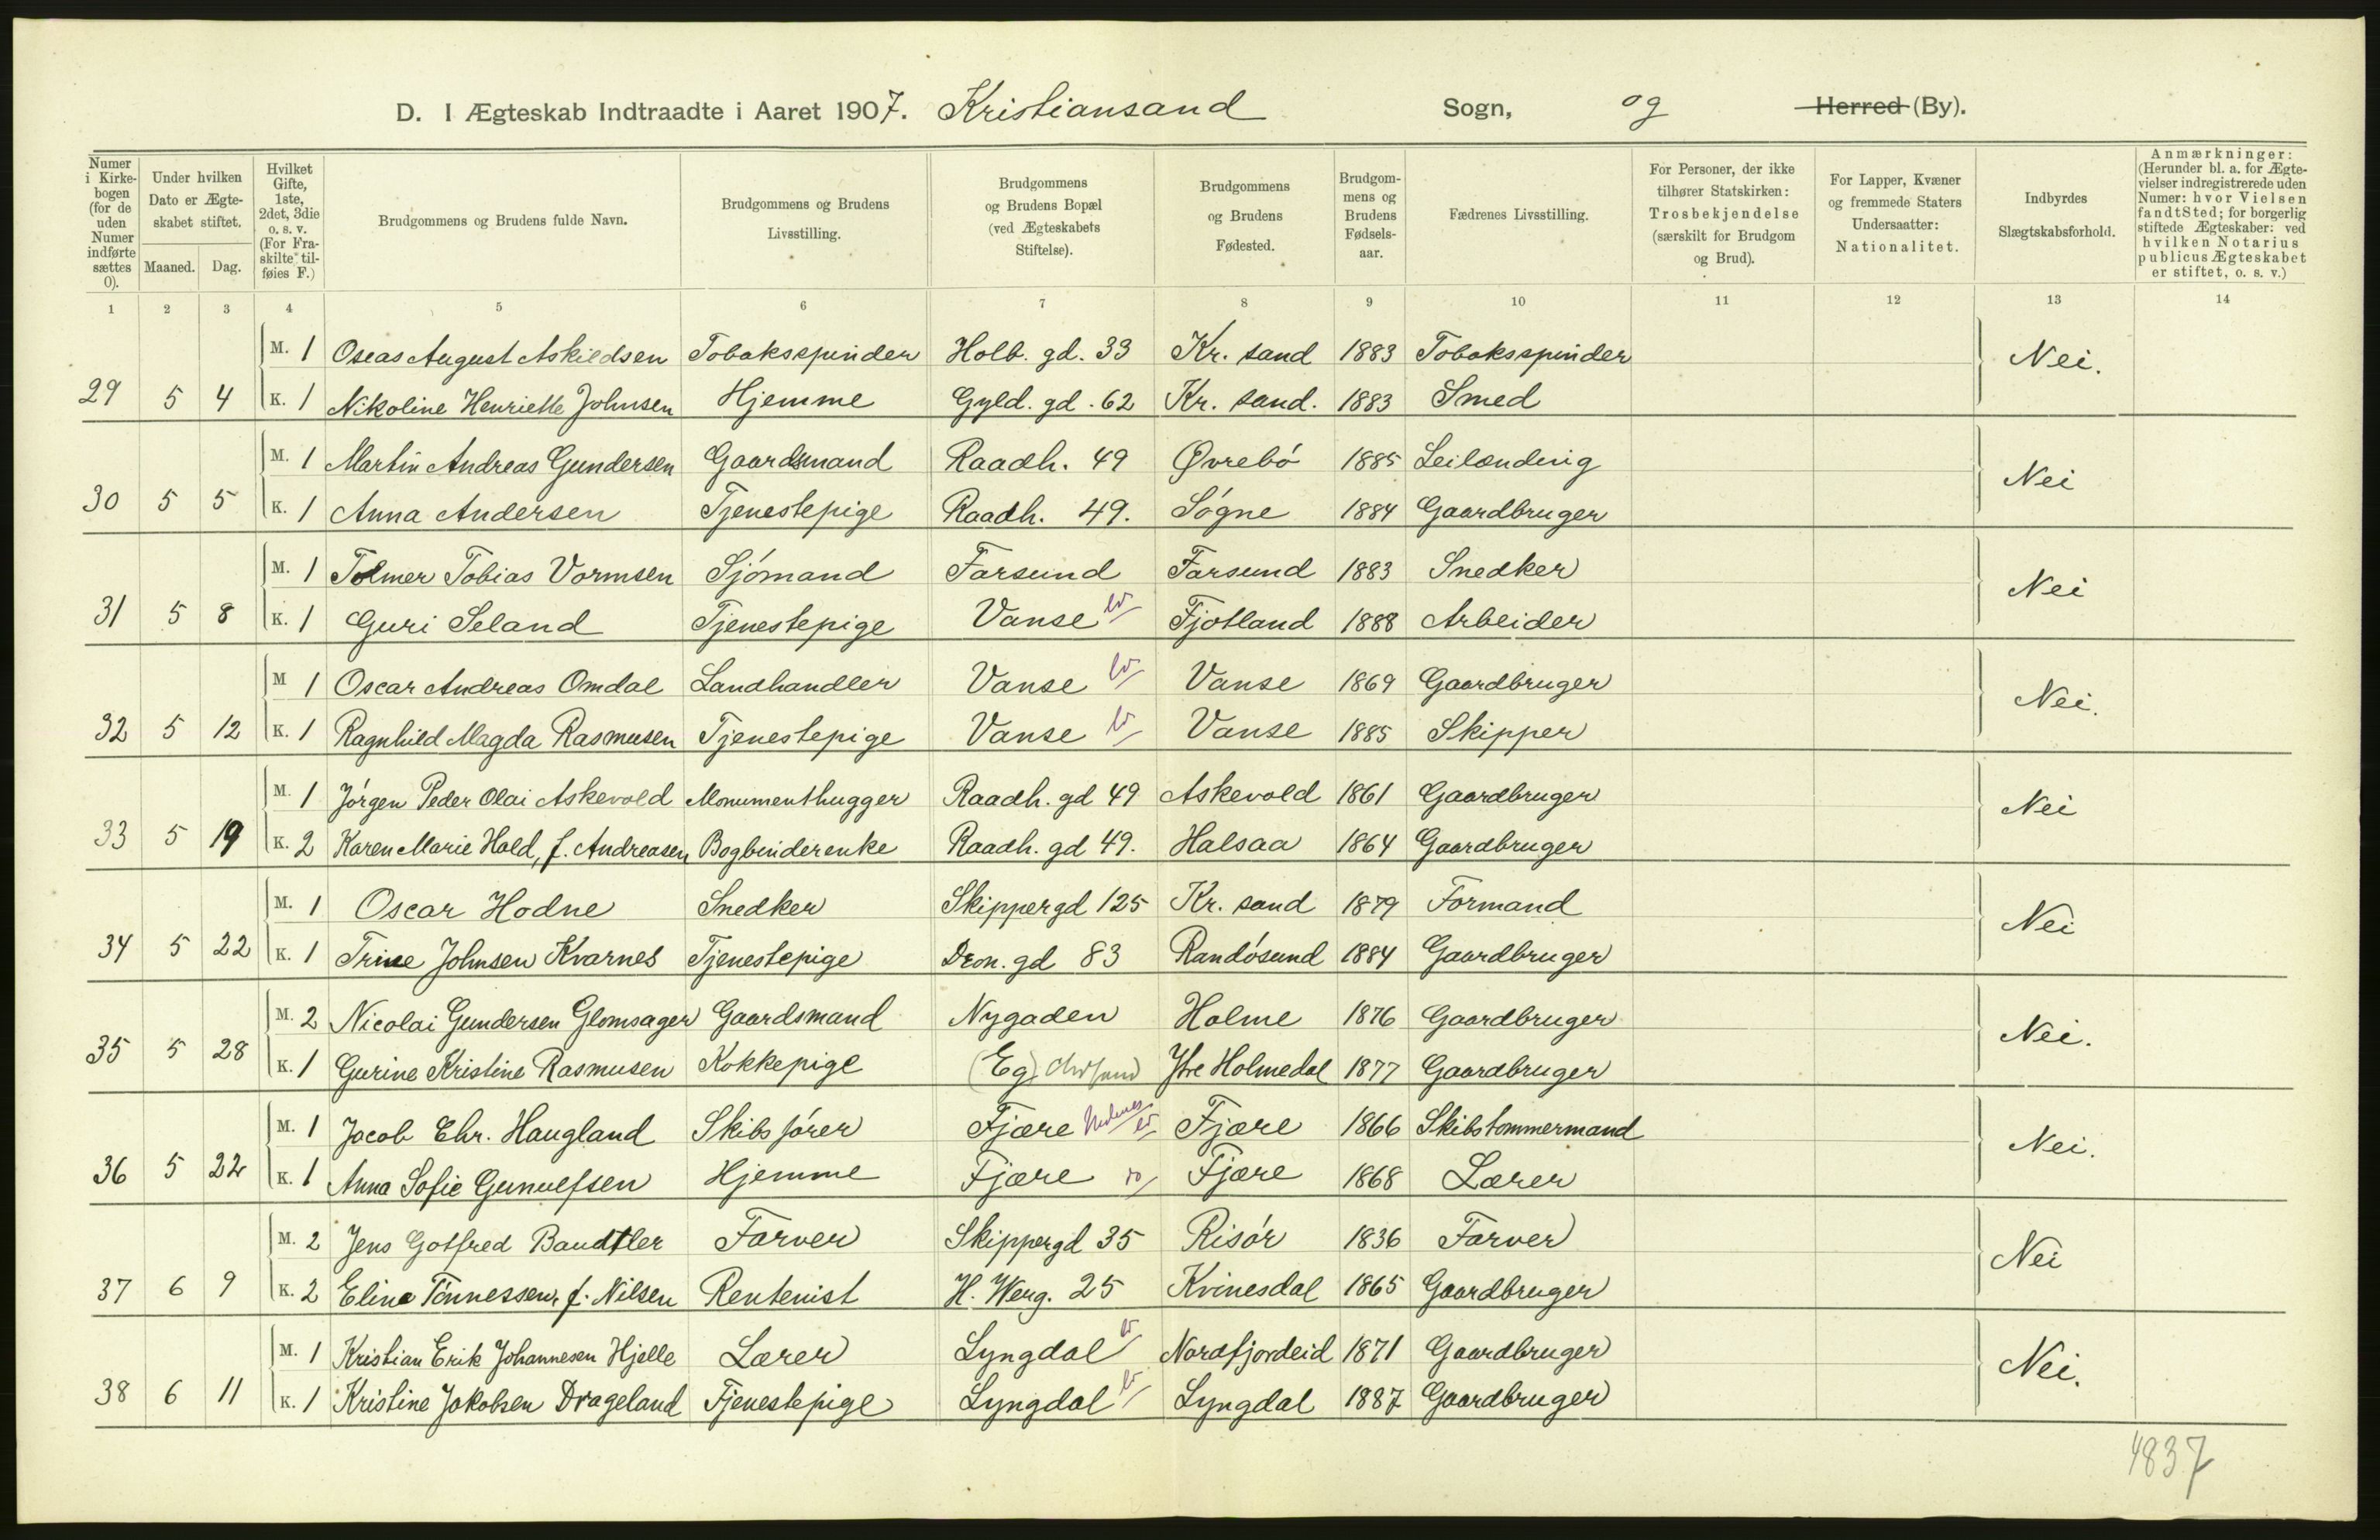 D. I Ægteskab Indtraadte i Aaret 1907. Kristiansand Sogn, og Herred (By).
Numer i Kirkebogen (for de uden Numer indførte sættes 0).
Under hvilken Dato er Ægteskabet stiftet.
Maaned. Dag.
Hvilket Gifte, 1ste, 2det, 3die o. s. v. (For Fraskilte tilføies F.)
Brudgommens og Brudens fulde Navn.
Brudgommens og Brudens Livsstilling.
Brudgommens og Brudens Bopæl (ved Ægteskabets Stiftelse).
Brudgommens og Brudens Fødested.
Brudgommens og Brudens Fødselsaar.
Fædrenes Livsstilling.
For Personer, der ikke tilhører Statskirken: Trosbekjendelse (særskilt for Brudgom og Brud).
For Lapper, Kvæner og fremmede Staters Undersaatter: Nationalitet.
Indbyrdes Slægtskabsforhold.
Anmærkninger: (Herunder bl. a. for Ægtevielser indregistrerede uden Numer: hvor Vielsen fandt Sted; for borgerlig stiftede Ægteskaber: ved hvilken Notarius publicus Ægteskabet er stiftet, o. s. v.)
1 2 3 4 5 6 7 8 9 10 11 12 13 14
M. 1 Oseas August Askildsen Tobaksspinder Holb. gd. 33 Kr. sand 1883 Tobaksspinder Nei.
29 5 4 K. 1 Nikoline Henriette Johnsen Hjemme Gyld. gd. 62 Kr. sand. 1883 Smed
M. 1 Martin Andreas Gundersen Gaardsmand Raadh. 49 Øvrebó 1885 Leilænding Nei
30 5 5 K. 1 Anna Andersen Tjenestepige Raadh. 49. Sógne 1884 Gaardbruger
M. 1 Tolmer Tobias Vormsen Sjómand Farsund Farsund 1883 Snedker Nei
31 5 8 K. 1 Guri Seland Tjenestepige Vanse Fjotland 1888 Arbeider
M 1 Oscar Andreas Omdal Landhandler Vanse Vanse 1869 Gaardbruger Nei.
32 5 12 K. 1 Ragnhild Magda Rasmusen Tjenestepige Vanse Vanse 1885 Skipper
M. 1 Jórgen Peder Olai Askevold Monumenthugger Raadh. gd 49 Askevold 1861 Gaardbruger Nei
33 5 19 K. 2 Karen Marie Hald, f. Andreasen Bogbinderenke Raadh. gd 49. Halsaa 1864 Gaardbruger
M. 1 Oscar Hodne Snedker Skippergd 125 Kr. sand 1879 Formand Nei
34 5 22 K. 1 Trine Johnsen Kvarnes Tjenestepige Dron. gd 83 Randósund 1884 Gaardbruger
M. 2 Nicolai Gundersen Glomsager Gaardsmand Nygaden Holme 1876 Gaardbruger Nei.
35 5 28 K. 1 Gurine Kristine Rasmusen Kokkepige (Eg) Ytre Holmedal 1877 Gaardbruger
M. 1 Jacob Chr. Haugland Skibsfórer Fjære Fjære 1866 Skibstømmermand Nei.
36 5 22 K. 1 Anna Sofie Gunuefsen Hjemme Fjære Fjære 1868 Lærer
M. 2 Jens Gotfred Baudtler Farver Skippergd 35 Risór 1836 Farver Nei
37 6 9 K. 2 Eline Tónnessen, f. Nilsen Rentenist H. Werg. 25 Kvinesdal 1865 Gaardbruger
M. 1 Kristian Erik Johannesen Hjelle Lærer Lyngdal Nordfjordeid 1871 Gaardbruger Nei.
38 6 11 K. 1 Kristine Jakobsen Drageland Tjenestepige Lyngdal Lyngdal 1887 Gaardbruger
4837